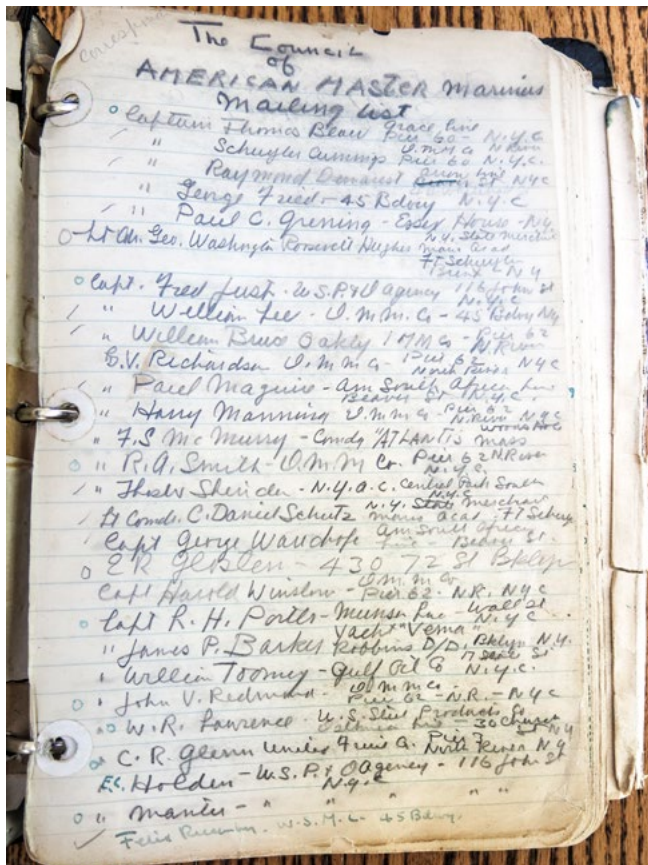 The Council
of
AMERICAN MASTER Mariners
Mailing list
Captain Thomas Blau Grace Line Pier 60 - N.Y.C
" Schuyler Cummings Pier 60 N.Y.C.
" Raymond Demarest St NYC
" George Fried - 45 Bdwy N.Y.C
" Paul C. Grening - Essex House - NY
Lt Cdr. Geo. Washington Roosevelt Hughes N.Y. State Mercht
Marine Acad
Ft Schuyler
Bronx - N.Y
Capt. Fred Just - U.S.P.&O agency 116 John St
N.Y.C
" William Lee - U.M.M. Co - 45 Bdwy NY
" William Bruce Oakly IMM Co - Pier 62
N. River
G.V. Richardson U.M.M Co - Pier 62
North River NYC
" Paul Maguire - Am South African Line
Beaver St N.Y.C.
" Harry Manning U.M.M Co - Pier 62
N. River N.Y.C
" F.S McMurry - Comdg "ATLANTIS Woods Hole Mass
" R.A. Smith - U.M.M Co. Pier 62 N River
N.Y.C.
" Sheridan - N.Y.A.C. Central Park South
N.Y.C
Lt Comdr. C. Daniel Schutz N.Y. State Merchan Marine Acad. FT Schuy
Capt George Wauchope Am South African Line - Beaver St.
E R - 430 72 St Bklyn
Capt Harold Winslow - U.M.M Co
Pier 62 - N.R. NYC
Capt R. H. Potter - Munson Line - Wall St
Yacht "Vema"
" James P. Barker Robbins D/D, Bklyn N.Y.
" William Toomey - Gulf Oil Co 17 State St
N.Y.C.
" John V. Redmond - U.M.M Co -
Pier 62 - N.R. - NYC
" W.R. Lawrence - U.S. Steel Products Co
Line - 30 Church St NY
" C.R. Glenn United Fruit Co. Pier 7
North River N.Y
E.C. Holden - U.S.P.&O Agency - 116 John St
N.Y.C
" Manter - " " " " "
Felix Riesenberg. U.S.M.L. 45 Bdwy.